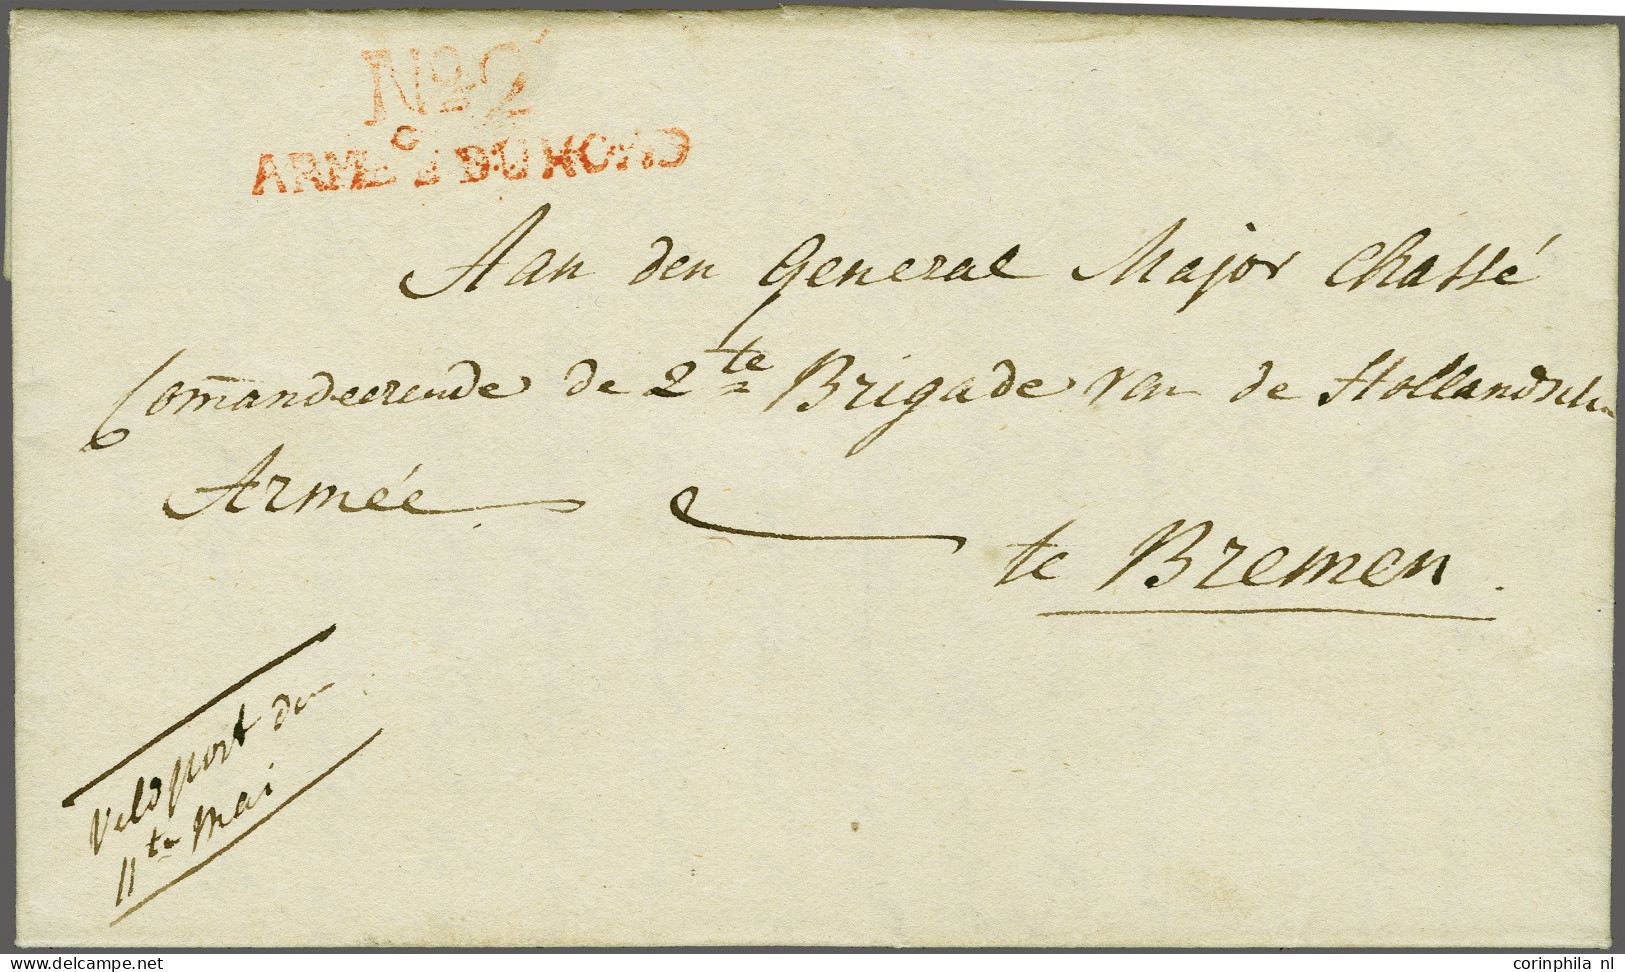 No 2
ARMÉE DU NORD
Aan den General Major Chassé
Commandeerende de 2te Brigade van de Hollandsche
Armée
te Bremen.
Veldpost den
11ten Mai
corinphila nl